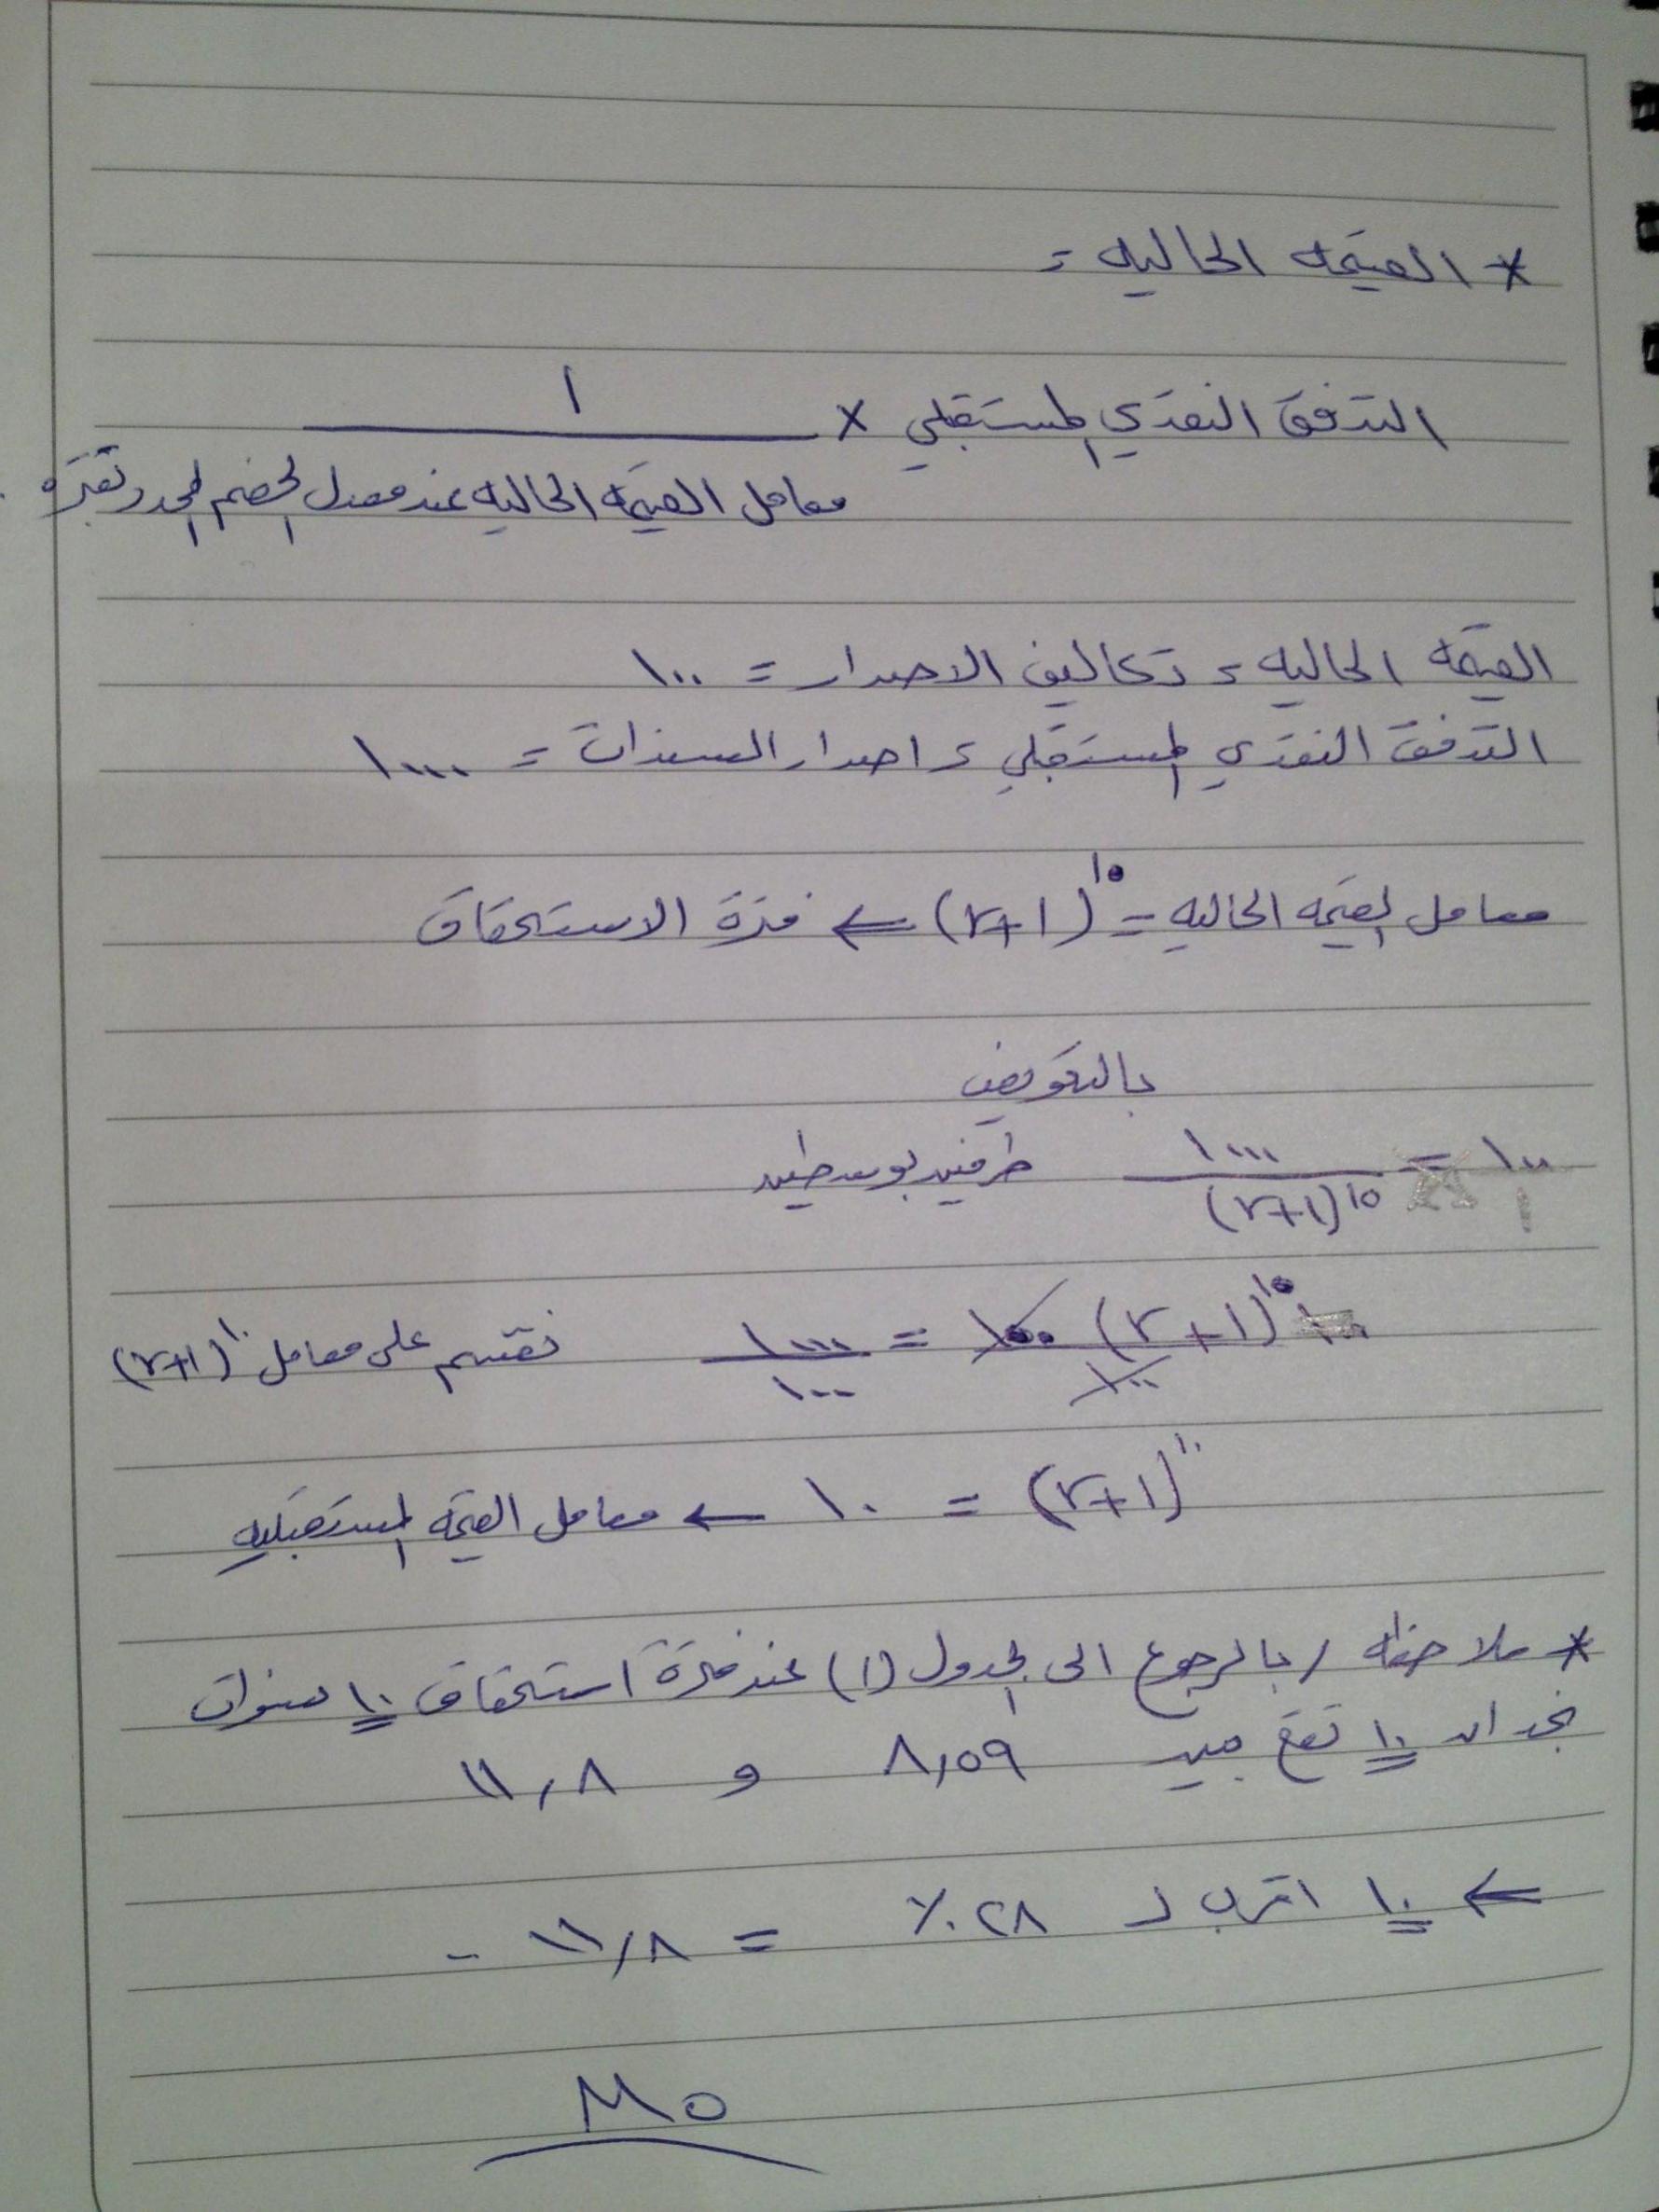 * القيمه الحاليه =
التدفق النقدي المستقبلي × ١
معامل القيمه الحاليه عند معدل الخصم المحدد لفترة
القيمه الحاليه = تكاليف الاصدار = ١٠٠
التدفق النقدي المستقبلي = اصدار السندات = ١٠٠٠
معامل القيمه الحاليه = (r+١)^١٥ ← فترة الاستحقاق
بالتعويض
١٠٠ / ١ = ١٠٠٠ / (r+١)^١٥ طرفين بوسطين
١٠٠ (r+١)^١٥ / ١٠٠ = ١٠٠٠ / ١٠٠ نقسم على معامل (r+١)^١٠
(r+١)^١٠ = ١٠ ← معامل القيمة المستقبليه
* ملاحظه / بالرجوع الى الجدول (١) عند فترة استحقاق ١٠ سنوات
نجد ان ١٠ تقع بين ٨,٥٩ و ١١,٨
← ١٠ اقرب لـ ٢٨٪ = ١١,٨ -